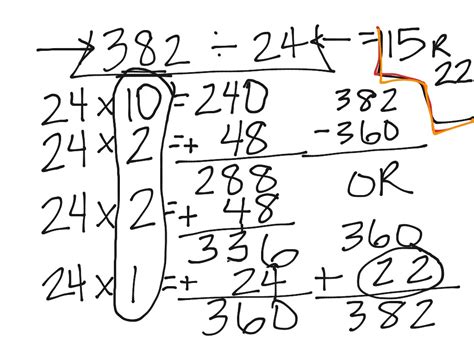 → 382 ÷ 24 ← = 15 R 22
24 × 10 = 240 382
24 × 2 = + 48 - 360
288 OR
24 × 2 = + 48
336 360
24 × 1 = + 24 + 22
360 382